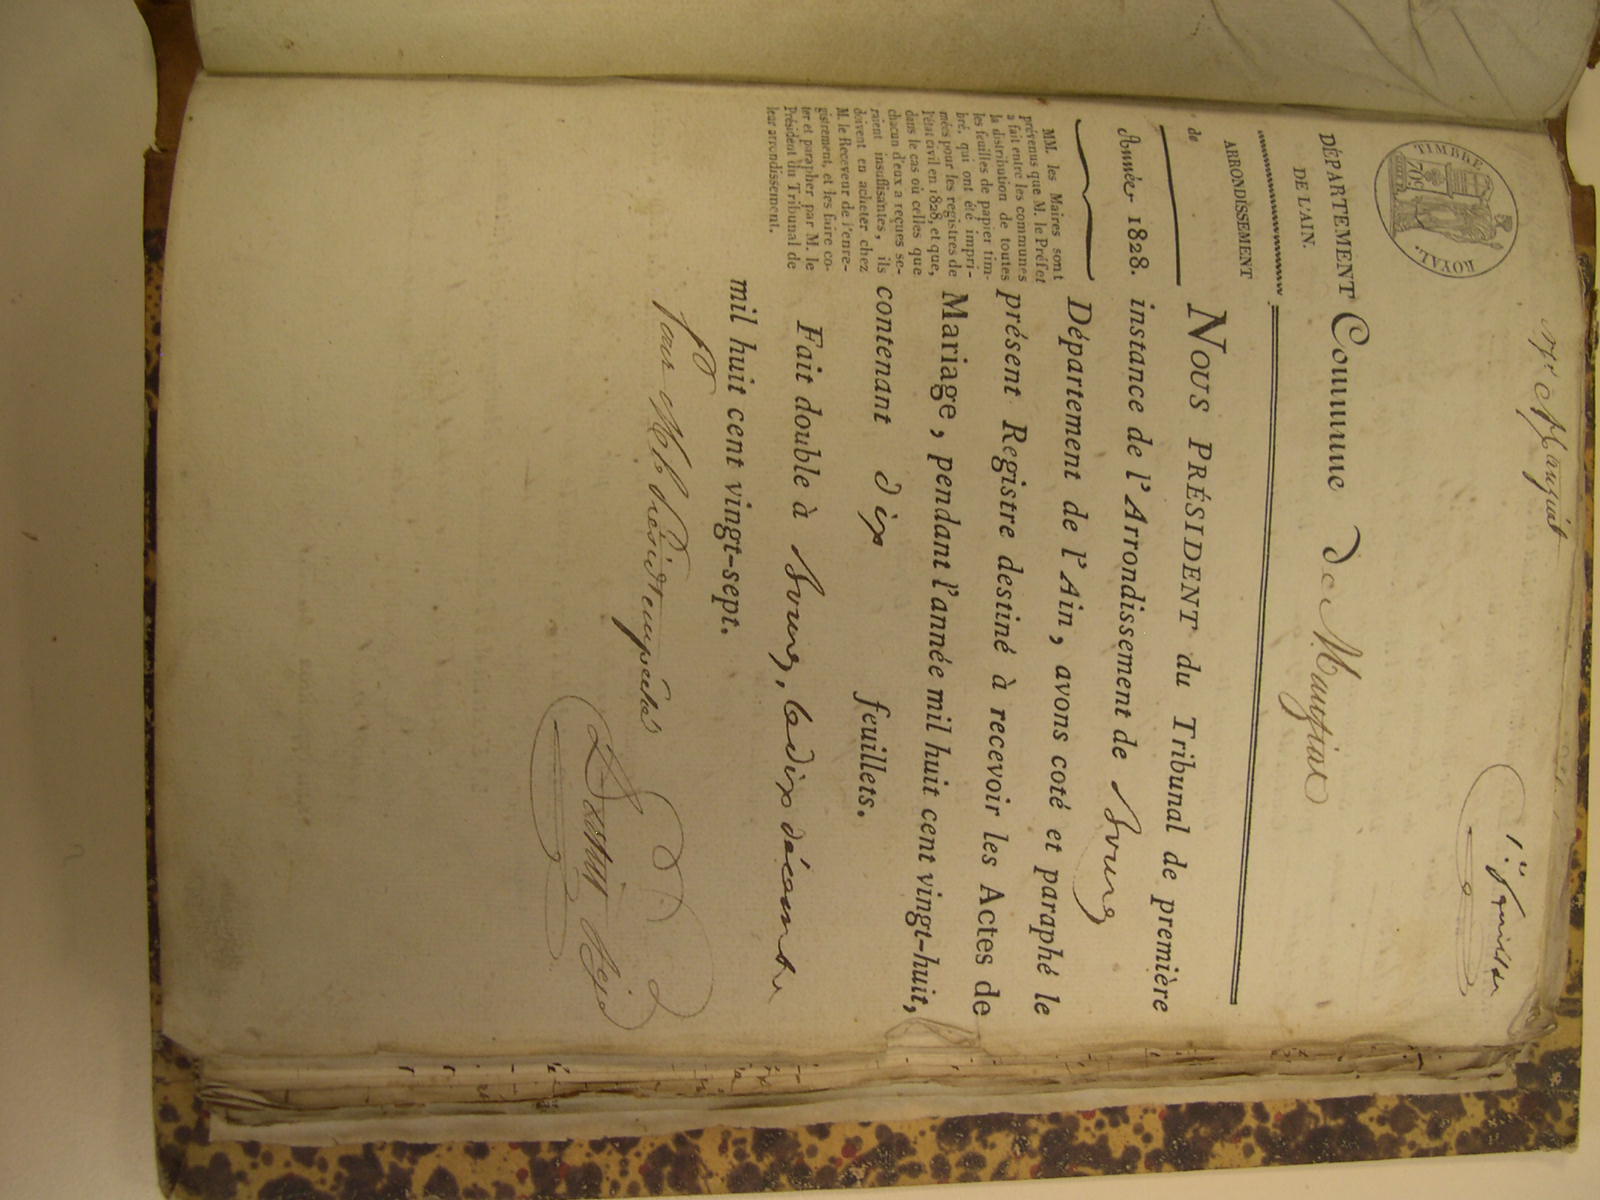 TIMBRE ROYAL.
70c
1er feuillet
DÉPARTEMENT
DE L'AIN.
Commune de
ARRONDISSEMENT
de
Année 1828.
MM. les Maires sont
prévenus que M. le Préfet
a fait entre les communes
la distribution de toutes
les feuilles de papier tim-
bré, qui ont été impri-
mées pour les registres de
l'état civil en 1828, et que,
dans le cas où celles que
chacun d'eux a reçues se-
raient insuffisantes, ils
doivent en acheter chez
M. le Receveur de l'enre-
gistrement, et les faire co-
ter et parapher par M. le
Président du Tribunal de
leur arrondissement.
NOUS PRÉSIDENT du Tribunal de première
instance de l'Arrondissement de Bourg
Département de l'Ain, avons coté et paraphé le
présent Registre destiné à recevoir les Actes de
Mariage, pendant l'année mil huit cent vingt-huit,
contenant dix feuillets.
Fait double à Bourg, le dix décembre
mil huit cent vingt-sept.
Pour Mr le président empêché